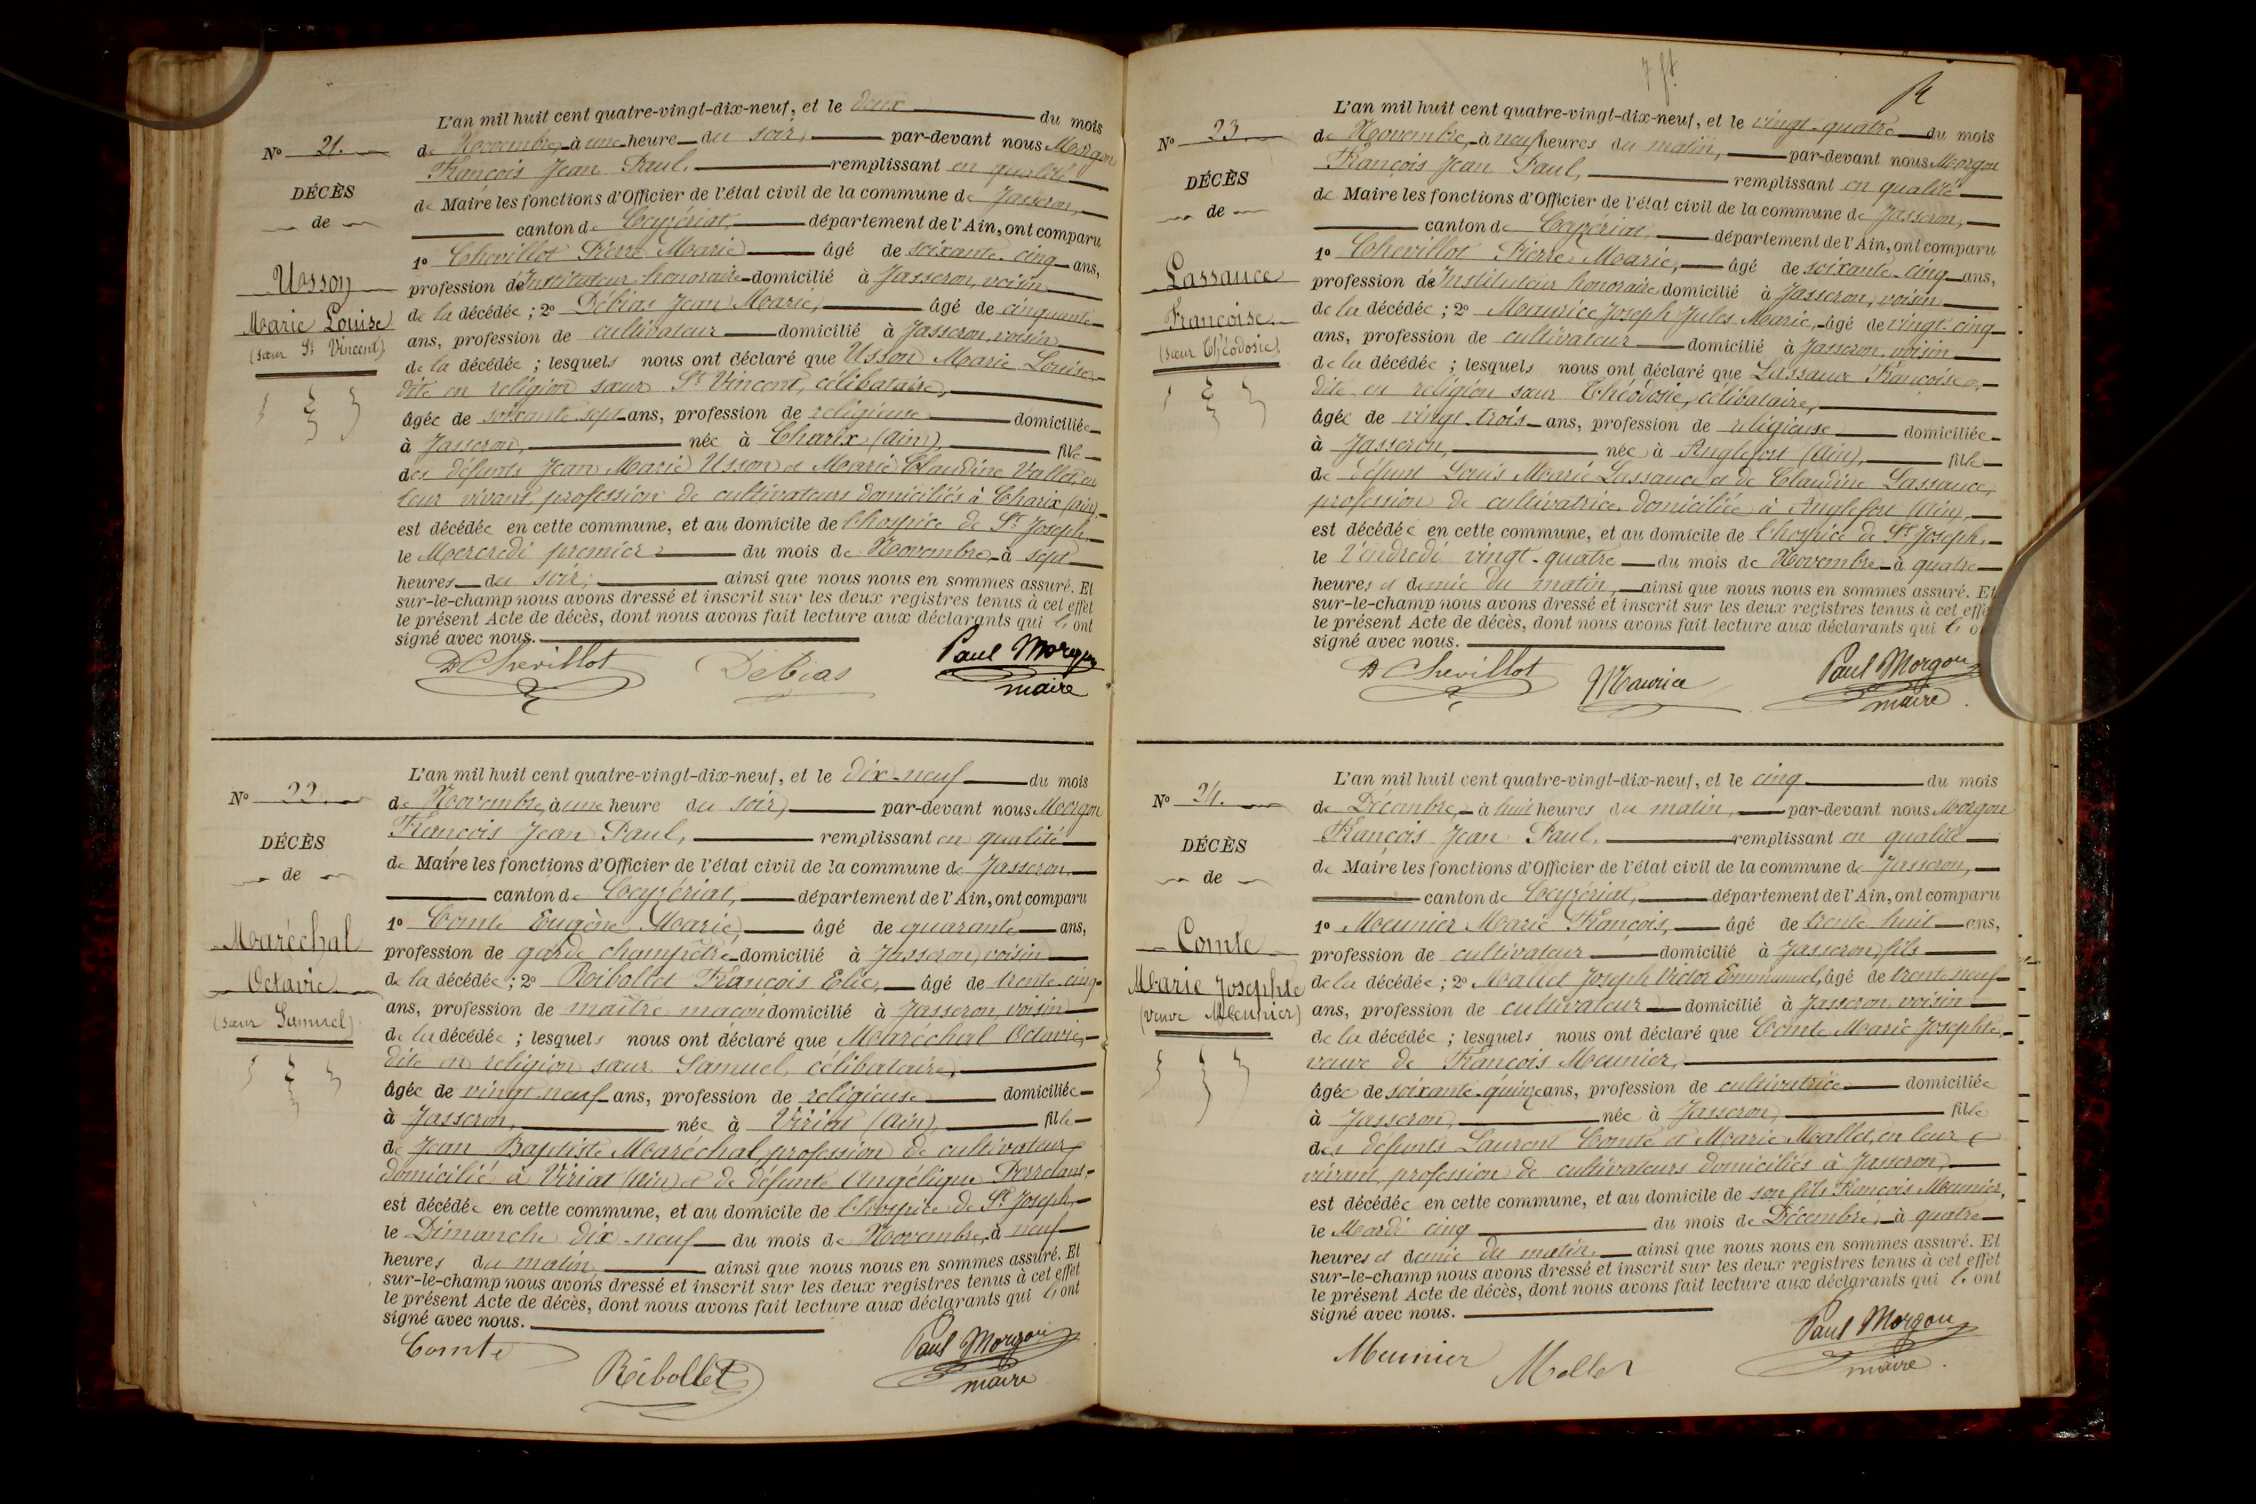 L'an mil huit cent quatre-vingt-dix-neuf, et le deux du mois
No 21. de Novembre à une heure du soir, par-devant nous Morgon
François Jean Paul, remplissant en qualité
DÉCÈS de Maire les fonctions d'Officier de l'état civil de la commune de Jasseron,
de canton de Ceyzériat, département de l'Ain, ont comparu
1o Chevillot Pierre Marie âgé de soixante-cinq ans,
Usson profession de Instituteur honoraire domicilié à Jasseron, voisin
Marie Louise de la décédée ; 2o Débias Jean Marie, âgé de cinquante
(sœur St Vincent) ans, profession de cultivateur domicilié à Jasseron, voisin
de la décédée ; lesquels nous ont déclaré que Usson Marie Louise,
dite en religion sœur St Vincent, célibataire,
âgée de soixante sept ans, profession de religieuse domiciliée
à Jasseron, née à Charix (Ain), fille
des défunts Jean Marie Usson et Marie Claudine Vallet, en
leur vivant, profession de cultivateurs domiciliés à Charix (Ain),
est décédée en cette commune, et au domicile de l'hospice de St Joseph,
le Mercredi premier du mois de Novembre à sept
heures du soir, ainsi que nous nous en sommes assuré. Et
sur-le-champ nous avons dressé et inscrit sur les deux registres tenus à cet effet
le présent Acte de décès, dont nous avons fait lecture aux déclarants qui l'ont
signé avec nous.
Chevillot Débias Paul Morgon
maire
L'an mil huit cent quatre-vingt-dix-neuf, et le dix-neuf du mois
No 22. de Novembre, à une heure du soir, par-devant nous Morgon
François Jean Paul, remplissant en qualité
DÉCÈS de Maire les fonctions d'Officier de l'état civil de la commune de Jasseron,
de canton de Ceyzériat, département de l'Ain, ont comparu
1o Comte Eugène Marie, âgé de quarante ans,
Maréchal profession de garde champêtre domicilié à Jasseron, voisin
Octavie de la décédée ; 2o Ribollet François Elie, âgé de trente-cinq
(sœur Samuel) ans, profession de maître maçon domicilié à Jasseron, voisin
de la décédée ; lesquels nous ont déclaré que Maréchal Octavie,
dite en religion sœur Samuel, célibataire,
âgée de vingt-neuf ans, profession de religieuse domiciliée
à Jasseron, née à Viriat (Ain), fille
de Jean Baptiste Maréchal, profession de cultivateur,
domicilié à Viriat (Ain) et de défunte Angélique
est décédée en cette commune, et au domicile de l'hospice de St Joseph,
le Dimanche dix-neuf du mois de Novembre, à neuf
heures du matin, ainsi que nous nous en sommes assuré. Et
sur-le-champ nous avons dressé et inscrit sur les deux registres tenus à cet effet
le présent Acte de décès, dont nous avons fait lecture aux déclarants qui l'ont
signé avec nous.
Comte Ribollet Paul Morgon
maire
L'an mil huit cent quatre-vingt-dix-neuf, et le vingt-quatre du mois
No 23. de Novembre, à neuf heures du matin, par-devant nous Morgon
François Jean Paul, remplissant en qualité
DÉCÈS de Maire les fonctions d'Officier de l'état civil de la commune de Jasseron,
de canton de Ceyzériat, département de l'Ain, ont comparu
1o Chevillot Pierre Marie, âgé de soixante-cinq ans,
Lassauce profession de Instituteur honoraire domicilié à Jasseron, voisin
Françoise de la décédée ; 2o Maurice Joseph Jules Marie, âgé de vingt-cinq
(sœur Théodosie) ans, profession de cultivateur domicilié à Jasseron, voisin
de la décédée ; lesquels nous ont déclaré que Lassauce Françoise,
dite en religion sœur Théodosie, célibataire,
âgée de vingt-trois ans, profession de religieuse domiciliée
à Jasseron, née à Anglefort (Ain), fille
de défunt Louis Marie Lassauce et de Claudine Lassauce,
profession de cultivatrice domiciliée à Anglefort (Ain),
est décédée en cette commune, et au domicile de l'hospice de St Joseph,
le Vendredi vingt-quatre du mois de Novembre à quatre
heures et demie du matin, ainsi que nous nous en sommes assuré. Et
sur-le-champ nous avons dressé et inscrit sur les deux registres tenus à cet effet
le présent Acte de décès, dont nous avons fait lecture aux déclarants qui l'ont
signé avec nous.
Chevillot Maurice Paul Morgon
maire
L'an mil huit cent quatre-vingt-dix-neuf, et le cinq du mois
No 24. de Décembre, à huit heures du matin, par-devant nous Morgon
François Jean Paul, remplissant en qualité
DÉCÈS de Maire les fonctions d'Officier de l'état civil de la commune de Jasseron,
de canton de Ceyzériat, département de l'Ain, ont comparu
1o Meunier Marie François, âgé de trente huit ans,
Comte profession de cultivateur domicilié à Jasseron, fils
Marie Josephte de la décédée ; 2o Mallet Joseph Victor Emmanuel, âgé de trente-neuf
(veuve Meunier) ans, profession de cultivateur domicilié à Jasseron, voisin
de la décédée ; lesquels nous ont déclaré que Comte Marie Josephte,
veuve de François Meunier,
âgée de soixante-quinze ans, profession de cultivatrice domiciliée
à Jasseron, née à Jasseron, fille
des défunts Laurent Comte et Marie Mallet, en leur
vivant, profession de cultivateurs domiciliés à Jasseron,
est décédée en cette commune, et au domicile de son fils François Meunier,
le Mardi cinq du mois de Décembre, à quatre
heures et demie du matin, ainsi que nous nous en sommes assuré. Et
sur-le-champ nous avons dressé et inscrit sur les deux registres tenus à cet effet
le présent Acte de décès, dont nous avons fait lecture aux déclarants qui l'ont
signé avec nous.
Meunier Mallet Paul Morgon
maire